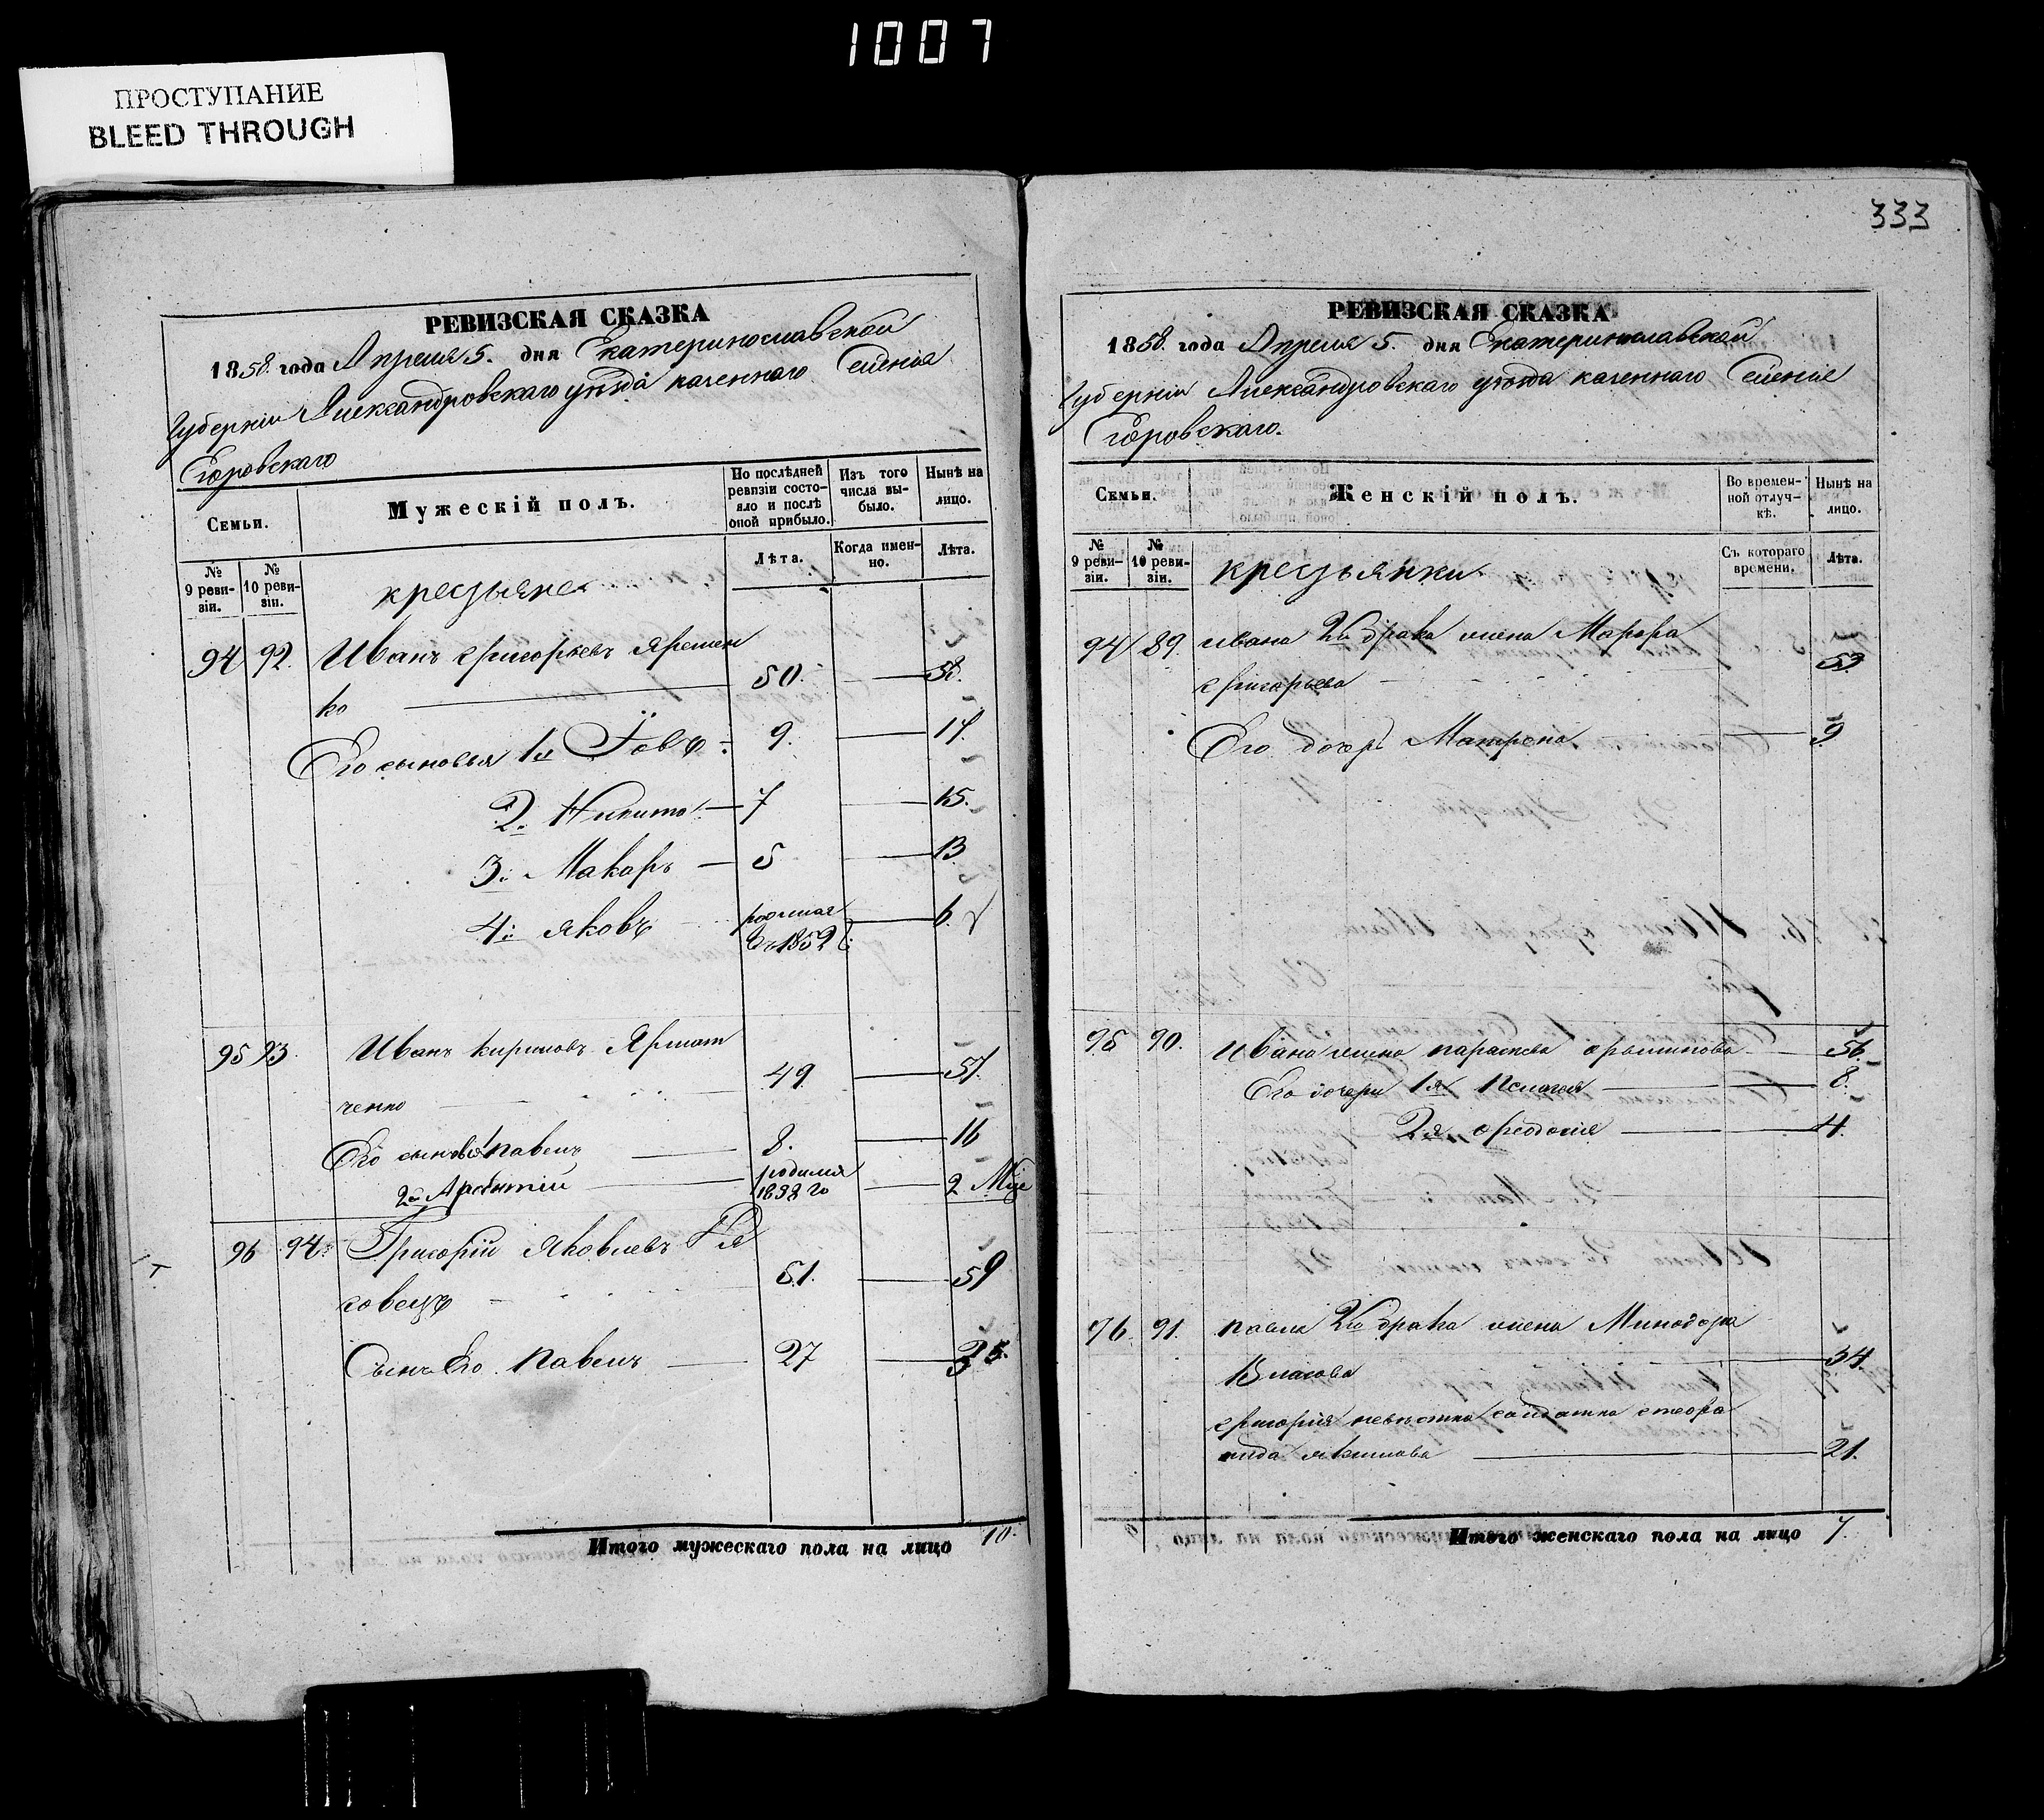 1007
ПРОСТУПАНИЕ
BLEED THROUGH
РЕВИЗСКАЯ СКАЗКА
1858 года Апреля 5. дня Екатеринославской
Губерніи Александровскаго уѣзда казеннаго Селенія
Егоровскаго
Семьи.
Мужескій полъ.
По послѣдней ревизіи состояло и послѣ оной прибыло.
Изъ того числа выбыло.
Нынѣ на лицо.
№ 9 ревизіи.
№ 10 ревизіи.
Лѣта.
Когда именно.
Лѣта.
крестьяне
94 92. Иванъ Григорьевъ Яремен
ко 50. 58.
Его сыновья 1й Іовъ 9. 17.
2й Никита 7 15.
3й Макаръ 5 13
4й Яковъ родился въ 1852 6.
95 93. Иванъ Кириловъ
ченко 49. 57.
Его сыновья Павелъ 8. 16
2й родился 1858 го 2 Мце
96 94. Григорій Яковлевъ
ковецъ 51. 59
Сынъ Его Павелъ 27 35.
Итого мужескаго пола на лицо 10.
333
РЕВИЗСКАЯ СКАЗКА
1858. года Апреля 5. дня Екатеринославской
Губерніи Александровскаго уѣзда казеннаго Селенія
Егоровскаго.
Семьи.
Женскій полъ.
Во временной отлучкѣ.
Нынѣ на лицо.
№ 9 ревизіи.
№ 10 ревизіи.
Съ котораго времени.
Лѣта.
крестьянки
94 89. Ивана 2го брака жена Марфа
Григорьева 53
Его дочерь Матрена 9
95 90. Ивана жена Параскева 56.
Его дочери 1я Пелагея 8.
2я Феодосія 4.
96. 91. Павла 2го брака жена Минодора
Власова 34.
Григорія невѣстка солдатка
Якимова 21.
Итого женскаго пола на лицо 7.